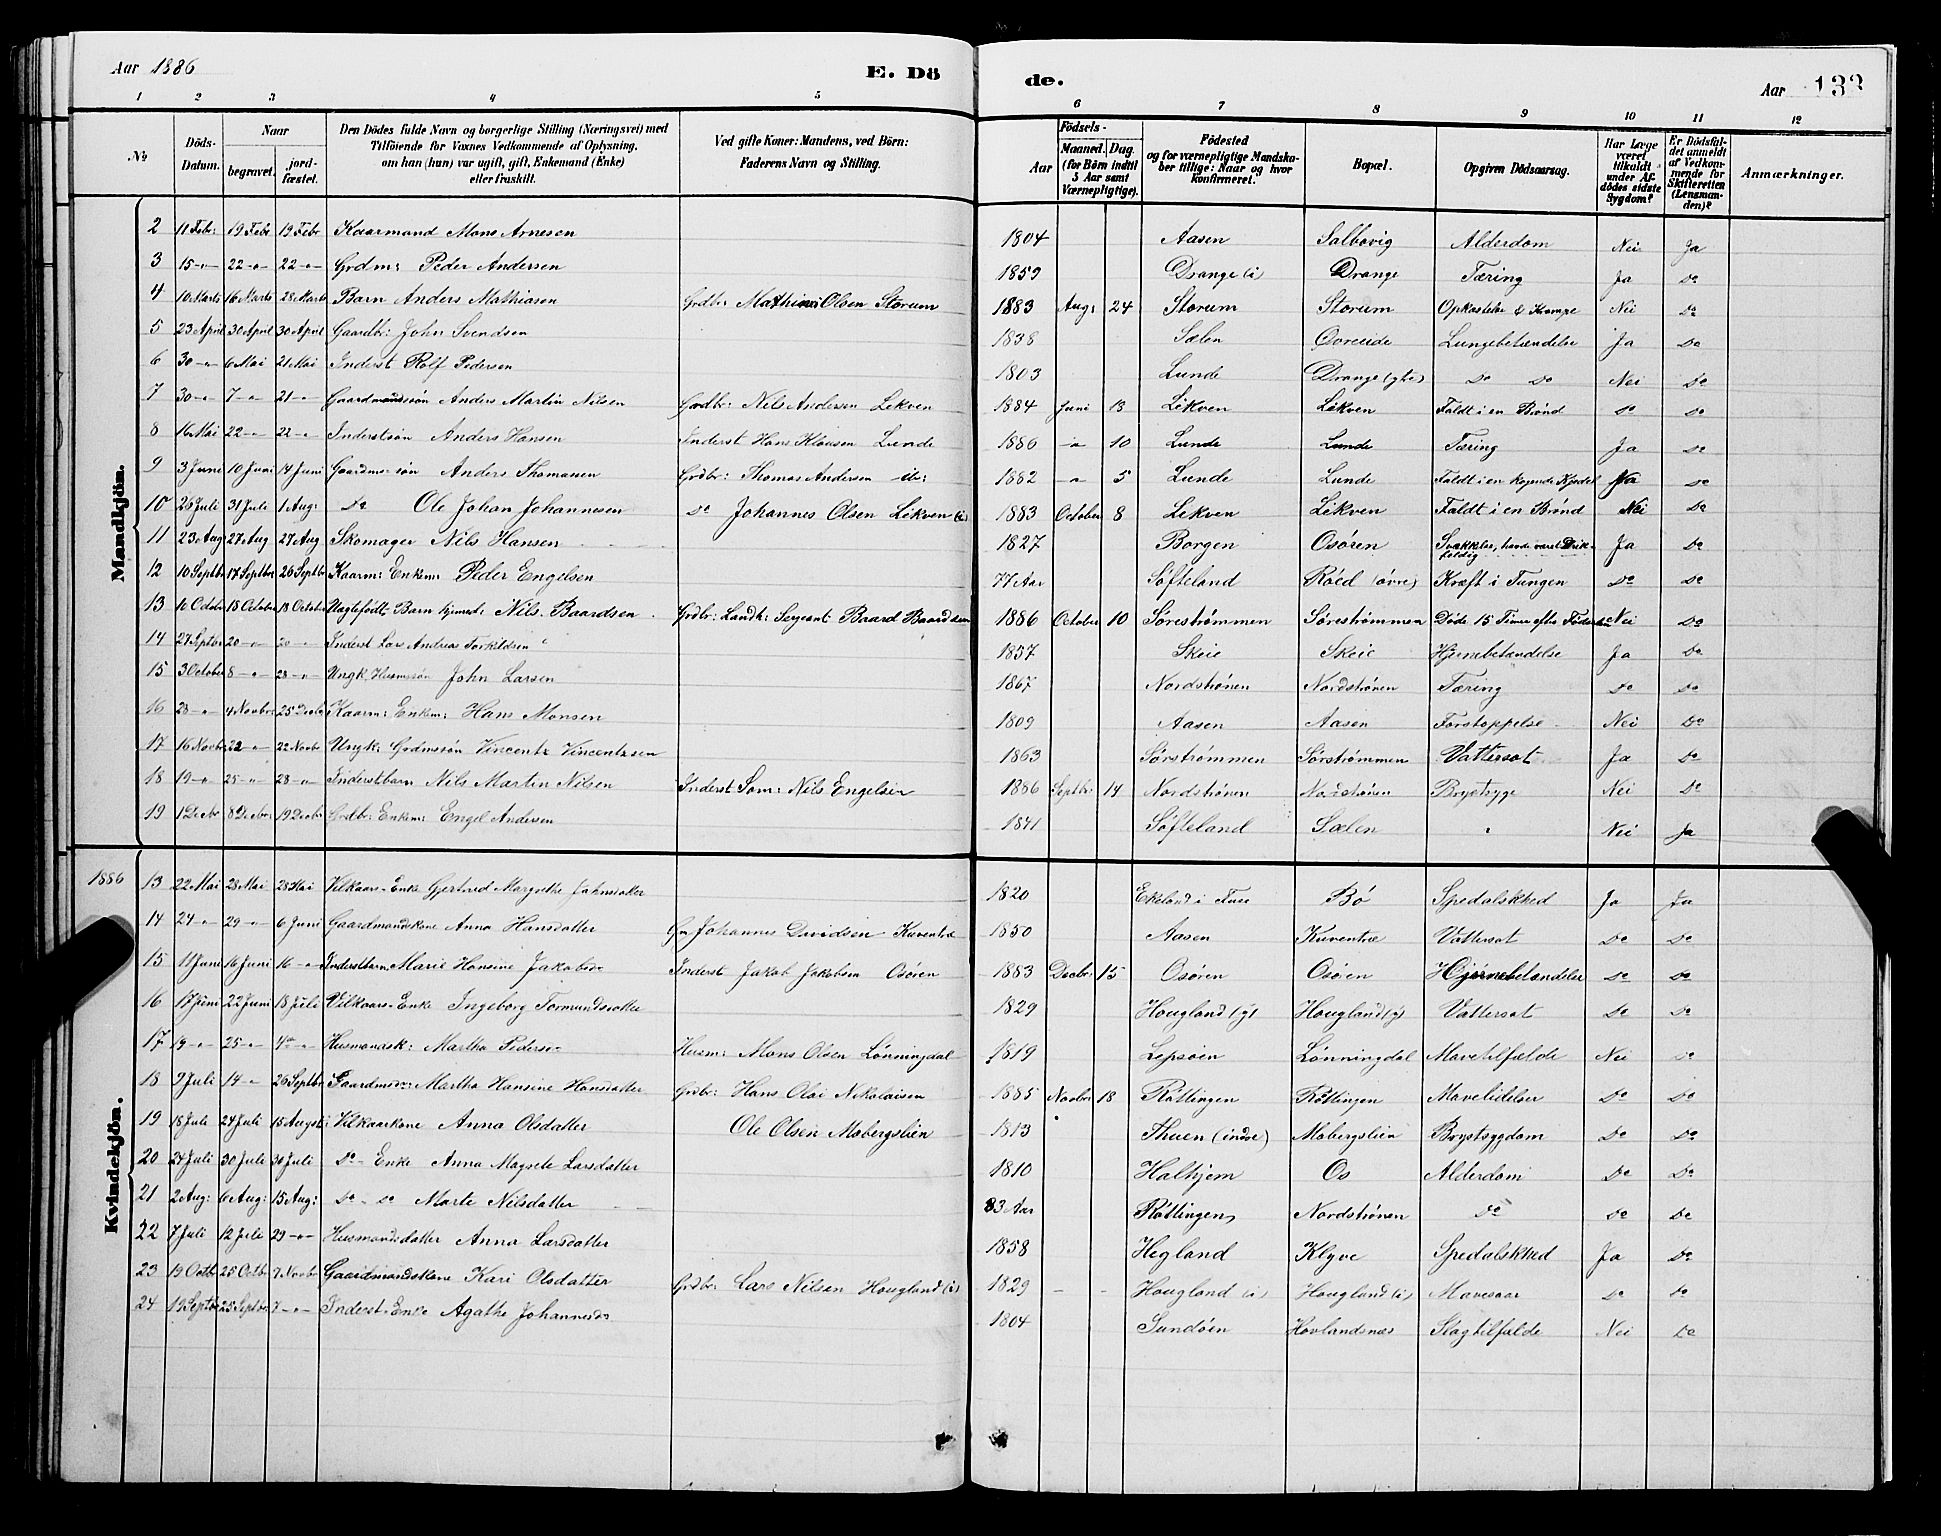 Aar 1886 E. Dö de. Aar 133
1 2 3 4 5 6 7 8 9 10 11 12
№
Döds-Datum.
Naar
begravet.
jordfæstet.
Den Dödes fulde Navn og borgerlige Stilling (Næringsvei) med
Tilföiende for Voxnes Vedkommende af Oplysning,
om han (hun) var ugift, gift, Enkemand (Enke)
eller fraskilt.
Ved gifte Koner: Mandens, ved Börn:
Faderens Navn og Stilling.
Födsels-
Aar
Maaned. Dag.
(for Börn indtil
5 Aar samt
Værnepligtige).
Födested
og for værnepligtige Mandskaber tillige: Naar og hvor
konfirmeret.
Bopæl.
Opgiven Dödsaarsag.
Har Læge
været
tilkaldt
under Afdödes sidste
Sygdom?
Er Dödsfaldet anmeldt
af Vedkommende for
Skifteretten
(Lensmanden)?
Anmærkninger.
Mandkjön.
2 11 Febr: 19 Febr 19 Febr Kaarmand Mons Arnesen 1804 Aasen Salbovig Alderdom Nei Ja
3 15 -"- 22 -"- 22 -"- Grdm: Peder Andersen 1859 Drange (i) Drange Tæring Ja Do
4 10 Marts 16 Marts 28 Marts Barn Anders Mathiasen Grdbr: Mathias Olsen Storum 1883 Aug: 24 Storum Storum Opkastelse & Krampe Nei Do
5 23 April 30 April 30 April Gaardbr: John Svendsen 1838 Sælen Øvreeide Lungebetændelse Ja Do
6 30 -"- 6 Mai 21 Mai Inderst Rolf Pedersen 1803 Lunde Drange (ytre) Do Do Nei Do
7 30 -"- 7 -"- 21 -"- Gaardmandssøn Anders Martin Nilsen Grdbr: Nils Andersen Lekven 1884 Juni 13 Lekven Lekven Faldt i en Brønd Do Do
8 16 Mai 22 -"- 22 -"- Inderstsøn Anders Hansen Inderst Hans Klausen Lunde 1880 -"- 10 Lunde Lunde Tæring Ja Do
9 3 Juni 10 Juni 14 Juni Gaardmssøn Anders Thomasen Grdbr: Thomas Andersen ib: 1882 -"- 5 Lunde Lunde Faldt i en kogende Kjedel Ja Do
10 26 Juli 31 Juli 1 Aug: Do Ole Johan Johannesen Do Johannes Olsen Lekven (i) 1883 October 8 Lekven Lekven Faldt i en Brønd Nei Do
11 23 Aug 27 Aug 27 Aug Skomager Nils Hansen 1827 Borgen Osören Svækkelse, havde været Drikfældig Ja Do
12 10 Septbr 17 Septbr 26 Septbr Kaarm: Enkem: Peder Engelsen 77 Aar Søfteland Røed (øvre) Kræft i Tungen Do Do
13 10 Octobr 18 October 18 October Uægtefødt Barn hjemmed: Nils Baardsen Grdbr: Landh: Sergeant Baard Baardsen 1886 October 10 Sørestrømmen Sørestrømmen Døde 15 Timer efter Fødselen Nei Do
14 27 Septbr 20 -"- 20 -"- Inderst Lars Andreas Torkildsen 1857 Skeie Skeie Hjernebetændelse Ja Do
15 3 October 8 -"- 28 -"- Ungk. Husmssøn John Larsen 1867 Nordstrønen Nordstrønen Tæring Do Do
16 28 -"- 4 Novbr: 25 Decbr Kaarm: Enkem: Hans Monsen 1809 Aasen Aasen Forstoppelse Nei Do
17 16 Novbr 22 -"- 22 Novbr Ungk: Grdmssøn Vincentz Vincentzsen 1863 Sørstrømmen Sørstrømmen Vattersot Ja Do
18 19 -"- 25 -"- 28 -"- Inderstbarn Nils Martin Nilsen Inderst Søm: Nils Engelsen 1886 Septbr. 14 Nordstrønen Nordstrønen Brystsyge Nei Do
19 1 Decbr 8 Decbr: 19 Decbr Grdbr: Enkem: Engel Andersen 1841 Søfteland Sælen " Nei Ja
Kvindekjön.
1886 13 22 Mai 28 Mai 28 Mai Vilkaars-Enke Gjertrud Margrethe Jahnsdatter 1820 Ekeland i Fuse Bø Spedalskhed Ja Ja
14 24 -"- 29 -"- 6 Juni Gaardmandskone Anna Hansdatter Gm Johannes Davidsen Kuventræ 1850 Aasen Kuventræ Vattersot Do Do
15 11 Juni 16 Juni 16 -"- Inderstbarn Marie Hansine Jakobsdr Inderst Jakob Jakobsen Osøren 1883 Decbr: 15 Osøren Osøren Hjernebetændelse Do Do
16 17 Juni 22 Juni 18 Juli Vilkaars-Enke Ingeborg Tormundsdatter 1829 Hougland (y) Hougland (y) Vattersot Do Do
17 19 -"- 25 -"- 4 -"- Husmandsk: Martha Pedersdr Husm: Mons Olsen Lønningdal 1819 Lepsøen Lønningdal Mavetilfælde Nei Do
18 9 Juli 14 -"- 26 Septbr Gaardmdr: Martha Hansine Hansdatter Grdbr: Hans Olai Nikolaisen 1885 Novbr 18 Røttingen Røttingen Mavelidelse Do Do
19 18 Juli 24 Juli 15 August: Vilkaarkone Anna Olsdatter Ole Olsen Mobergslien 1813 Thuen (indre) Mobergslien Brystsygdom Do Do
20 24 Juli 30 Juli 30 Juli Do - Enke Anna Magrete Larsdatter 1810 Halhjem Os Alderdom Do Do
21 2 Aug: 6 Aug: 15 Aug: Do - Do Marte Nilsdatter 83 Aar Røttingen Nordstrønen Do Do Do
22 7 Juli 12 Juli 29 -"- Husmandsdatter Anna Larsdatter 1858 Hegland Klyve Spedalskhed Ja Do
23 19 Octbr 25 Octbr 7 Novbr Gaardmandskone Kari Olsdatter Grdbr: Lars Nilsen Hougland (i) 1829 - - Hougland (i) Hougland (i) Mavesaar Do Do
24 19 Septbr 25 Septbr 7 -"- Inderst-Enke Agathe Johannesdr 1804 Sundøen Hovlandsnæs Slagtilfælde Nei Do